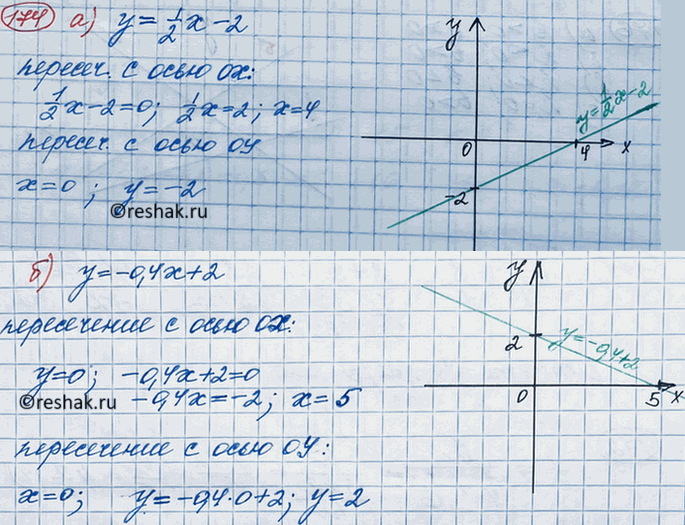 174 а) y = 1/2 x - 2
пересеч. с осью OX:
1/2 x - 2 = 0; 1/2 x = 2; x = 4
пересеч. с осью OY
x = 0 ; y = -2
©reshak.ru
y
y = 1/2 x - 2
0
4
x
-2
б) y = -0,4x + 2
пересечение с осью OX:
y = 0; -0,4x + 2 = 0
-0,4x = -2; x = 5
©reshak.ru
пересечение с осью OY:
x = 0; y = -0,4 · 0 + 2; y = 2
y
2
y = -0,4+2
0
5
x